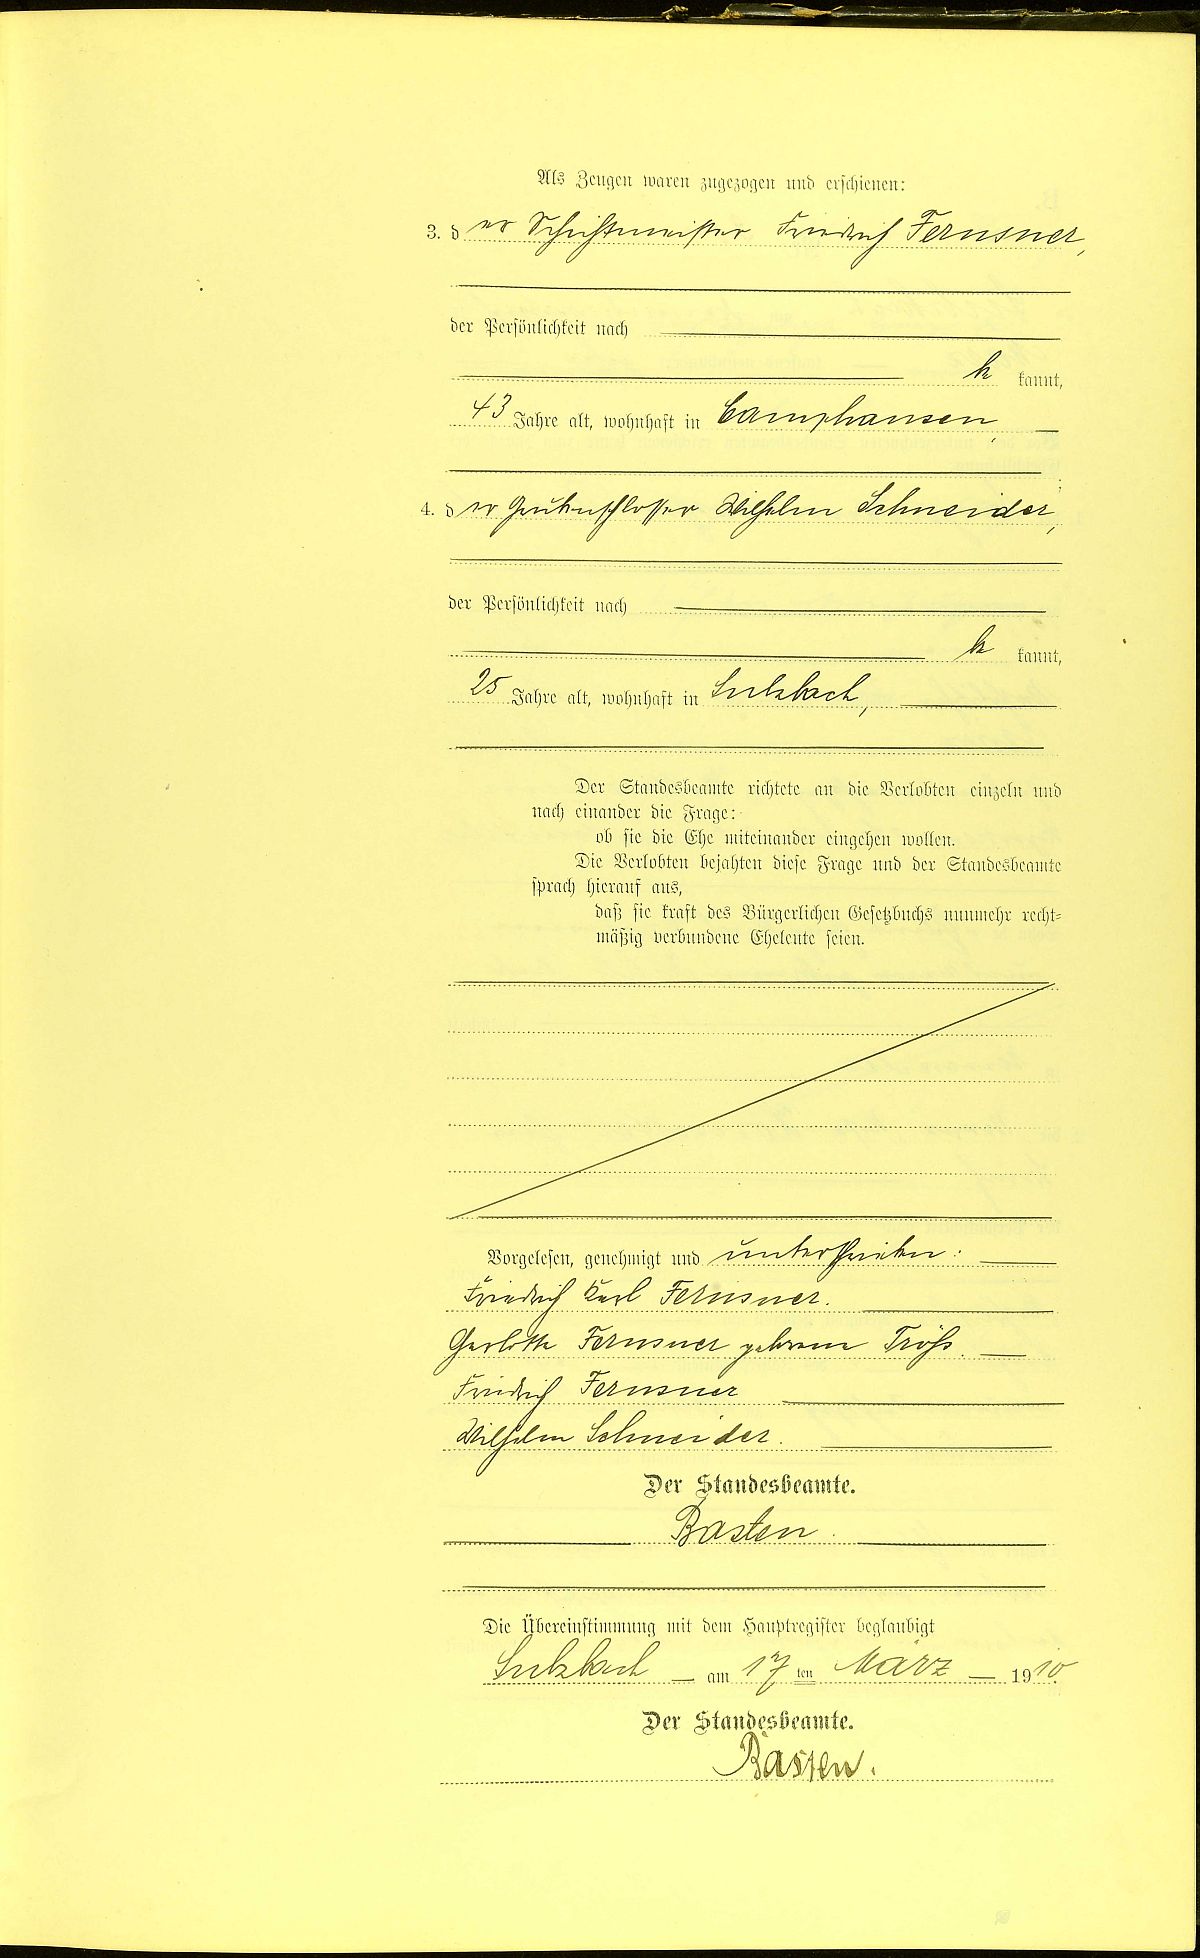 Als Zeugen waren zugezogen und erschienen:
3. der Schichtmeister Friedrich Fernsner,
der Persönlichkeit nach
be kannt,
43 Jahre alt, wohnhaft in Camphausen,
;
4. der Grubenschlosser Wilhelm Schneider,
der Persönlichkeit nach
be kannt,
25 Jahre alt, wohnhaft in Sulzbach,
Der Standesbeamte richtete an die Verlobten einzeln und
nach einander die Frage:
ob sie die Ehe miteinander eingehen wollen.
Die Verlobten bejahten diese Frage und der Standesbeamte
sprach hierauf aus,
daß sie kraft des Bürgerlichen Gesetzbuchs nunmehr recht=
mäßig verbundene Eheleute seien.
Vorgelesen, genehmigt und unterschrieben:
Friedrich Karl Fernsner.
Charlotte Fernsner geborene Tröß.
Friedrich Fernsner
Wilhelm Schneider.
Der Standesbeamte.
Basten.
Die Übereinstimmung mit dem Hauptregister beglaubigt
Sulzbach am 17 ten März 1910.
Der Standesbeamte.
Basten.